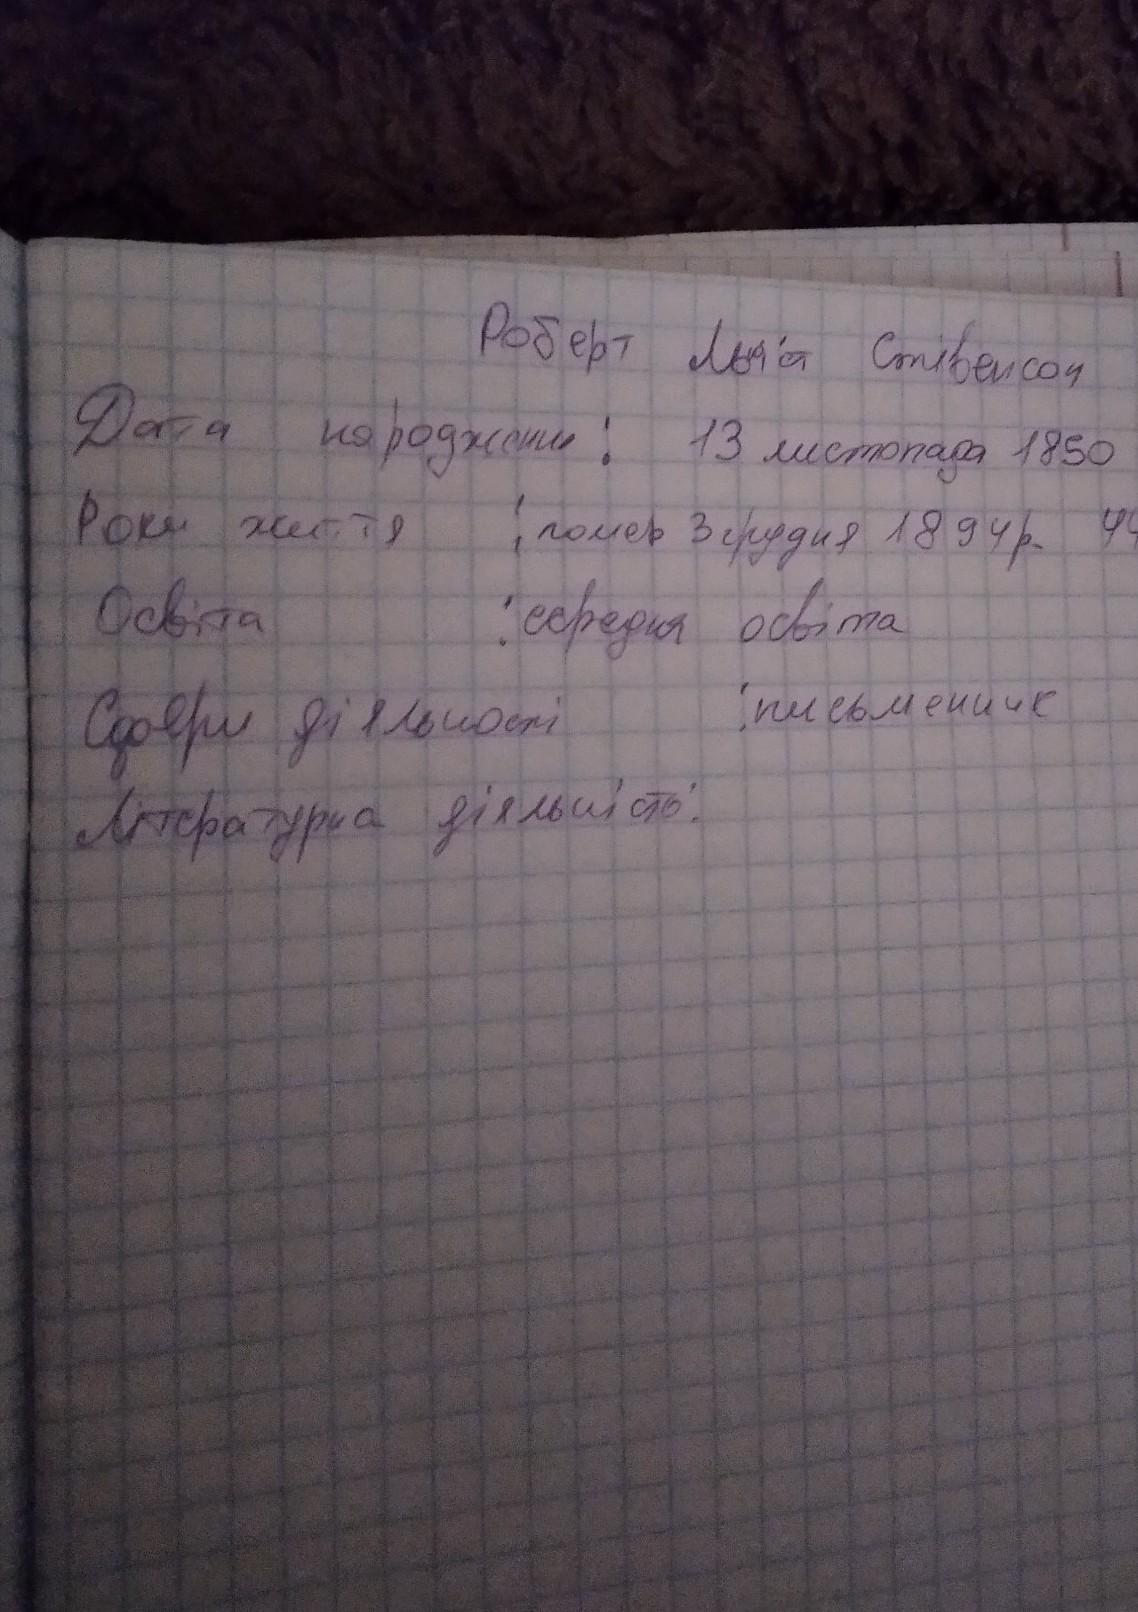 Роберт Льюїс Стівенсон
Дата народження: 13 листопада 1850
Роки життя : помер 3 грудня 1894р. 44
Освіта : середня освіта
Сфери діяльності : письменник
Літературна діяльність: